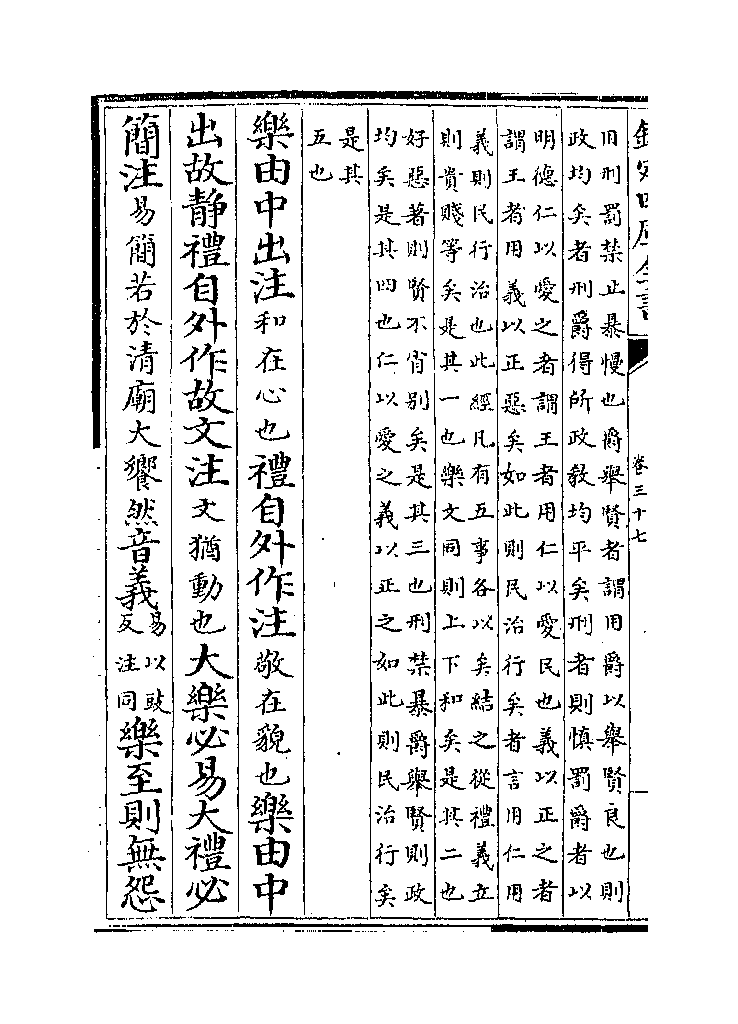 欽定四庫全書
卷三十七
用刑罰禁止暴慢也爵舉賢者謂用爵以舉賢良也則
政均矣者刑爵得所政教均平矣刑者則慎罰爵者以
明德仁以愛之者謂王者用仁以愛民也義以正之者
謂王者用義以正惡矣如此則民治行矣者言用仁用
義則民行治也此經凡有五事各以矣結之從禮義立
則貴賤等矣是其一也樂文同則上下和矣是其二也
好惡著則賢不肖別矣是其三也刑禁暴爵舉賢則政
均矣是其四也仁以愛之義以正之如此則民治行矣
是其
五也
樂由中出注和在心也禮自外作注敬在貌也樂由中
出故静禮自外作故文注文猶動也大樂必易大禮必
簡注易簡若於清廟大饗然音義易以豉反注同樂至則無怨